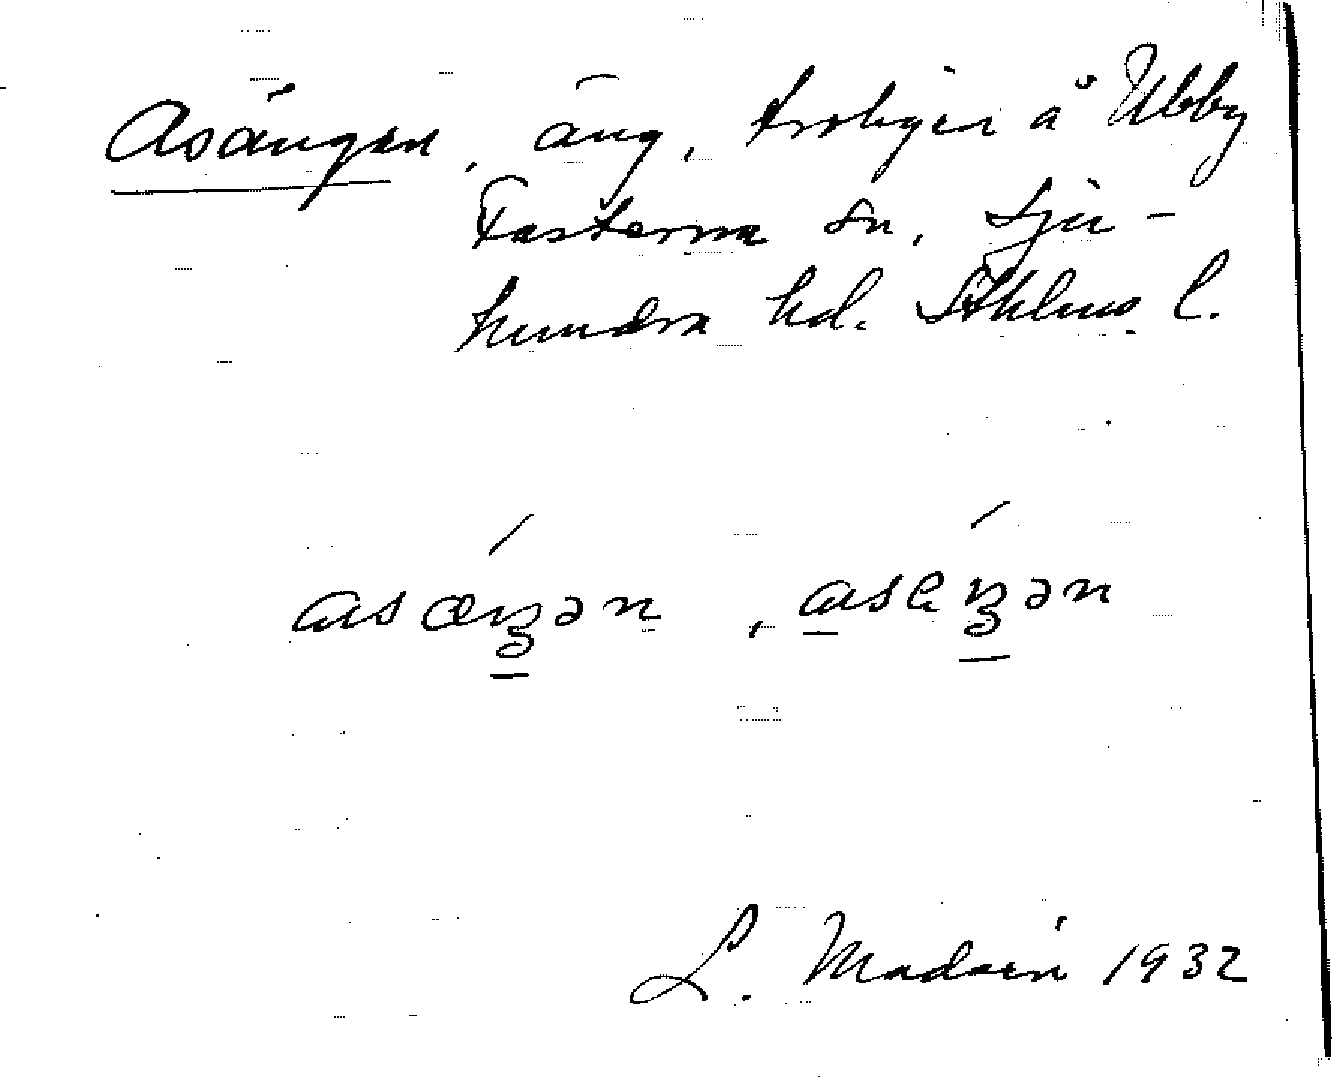 Asängen, äng, troligen å Ubby
Fasterna sn, Sju-
hundra hd. Sthlms l.
asæŋən, aseŋən
L. Modéen 1932